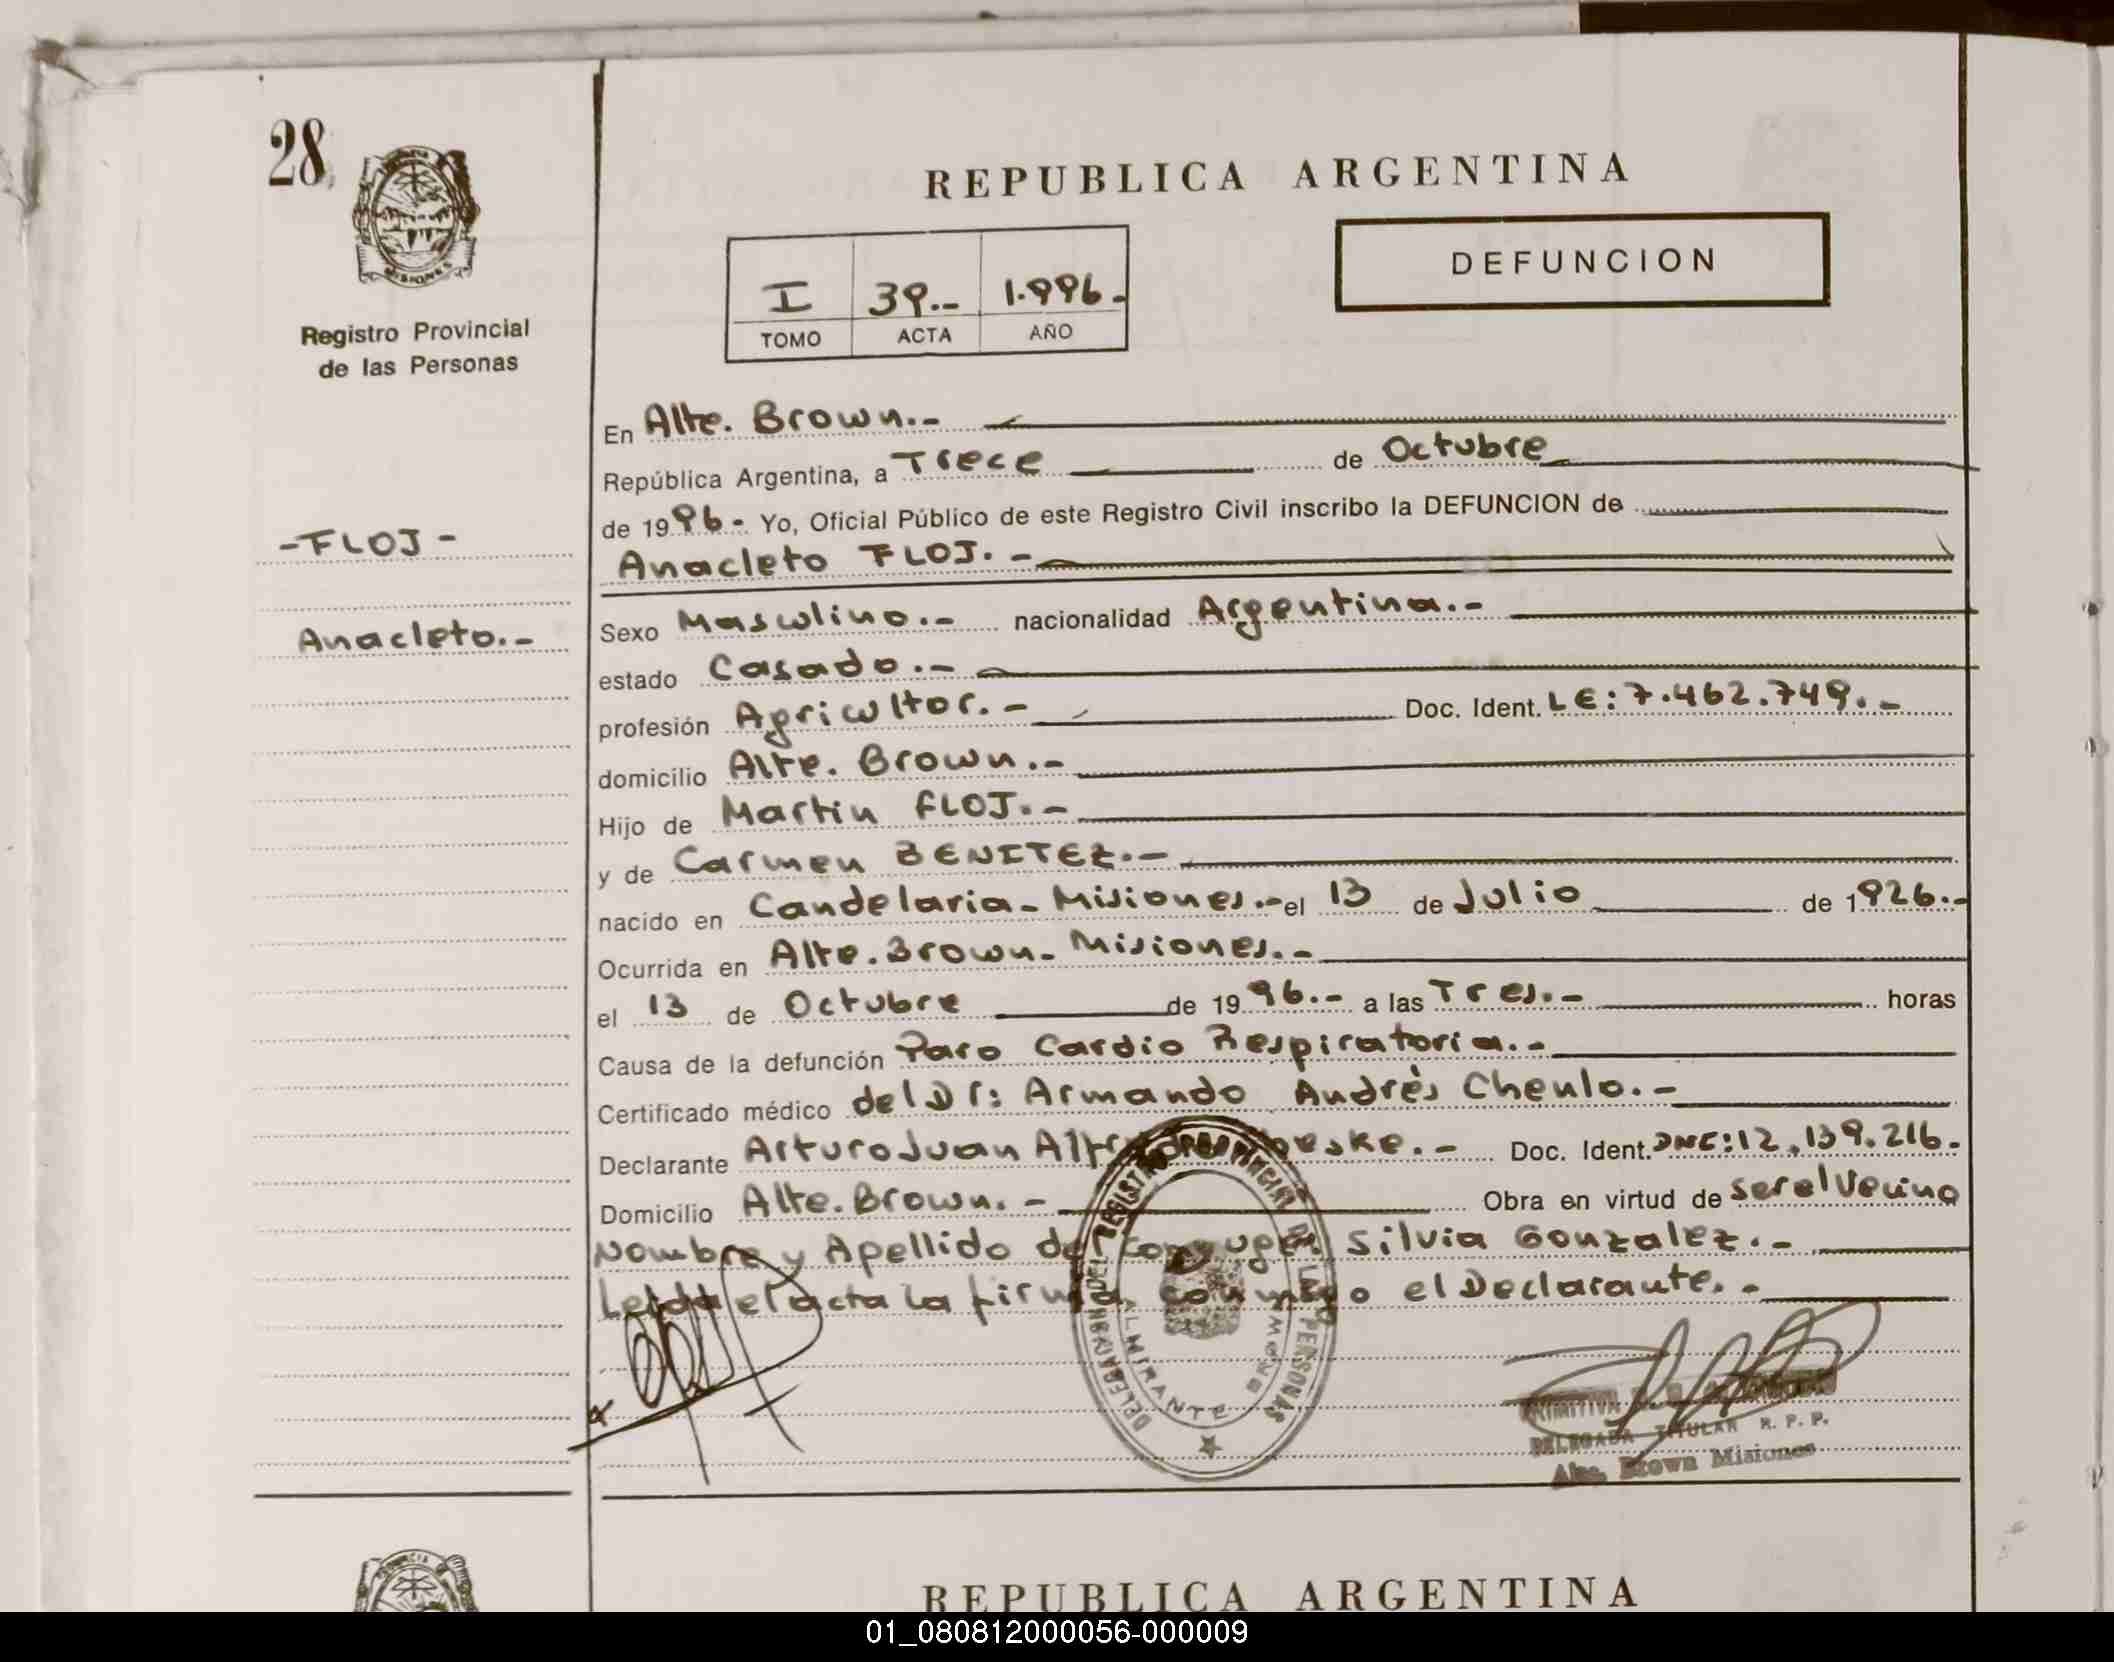 28
MISIONES
Registro Provincial
de las Personas
-FLOJ-
Anacleto.-
REPUBLICA ARGENTINA
I 39.- 1.996.-
TOMO ACTA AÑO
DEFUNCION
En Alte. Brown.-
República Argentina, a Trece de Octubre
de 1996.- Yo, Oficial Público de este Registro Civil inscribo la DEFUNCION de
Anacleto FLOJ.-
Sexo Masculino.- nacionalidad Argentina.-
estado Casado.-
profesión Agricultor.- Doc. Ident. LE: 7.462.749.-
domicilio Alte. Brown.-
Hijo de Martin FLOJ.-
y de Carmen BENITEZ.-
nacido en Candelaria - Misiones.- el 13 de Julio de 1926.-
Ocurrida en Alte. Brown - Misiones.-
el 13 de Octubre de 1996.- a las Tres.- horas
Causa de la defunción Paro Cardio Respiratoria.-
Certificado médico del Dr: Armando Andrés Chenlo.-
Declarante Arturo Juan Doc. Ident. DNI: 12.139.216.-
Domicilio Alte. Brown.- Obra en virtud de ser el Vecino
Nombre y Apellido del Conyuge: Silvia Gonzalez.-
Leida el acta la firma conmigo el Declarante.-
DELEGACION DEL REGISTRO PROVINCIAL DE LAS PERSONAS
ALMIRANTE BROWN
DELEGADA TITULAR R. P. P.
Alte. Brown Misiones
REPUBLICA ARGENTINA
01_080812000056-000009